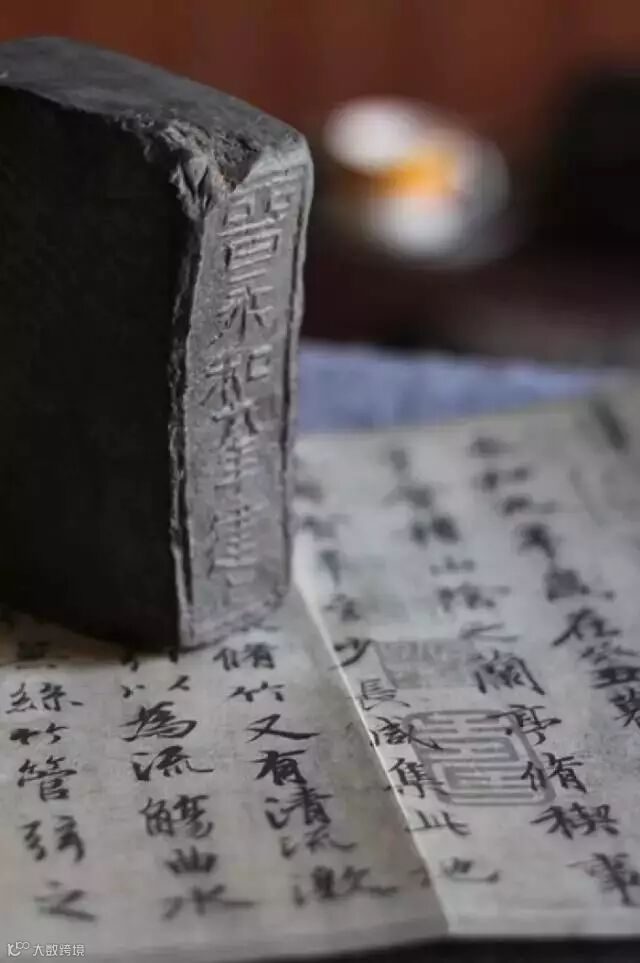 永和年
和九年歲在癸丑暮
會稽山陰之蘭亭脩禊事
畢至少長咸集此地
脩竹又有清流激
以為流觴曲水
絲竹管弦之
大数跨境